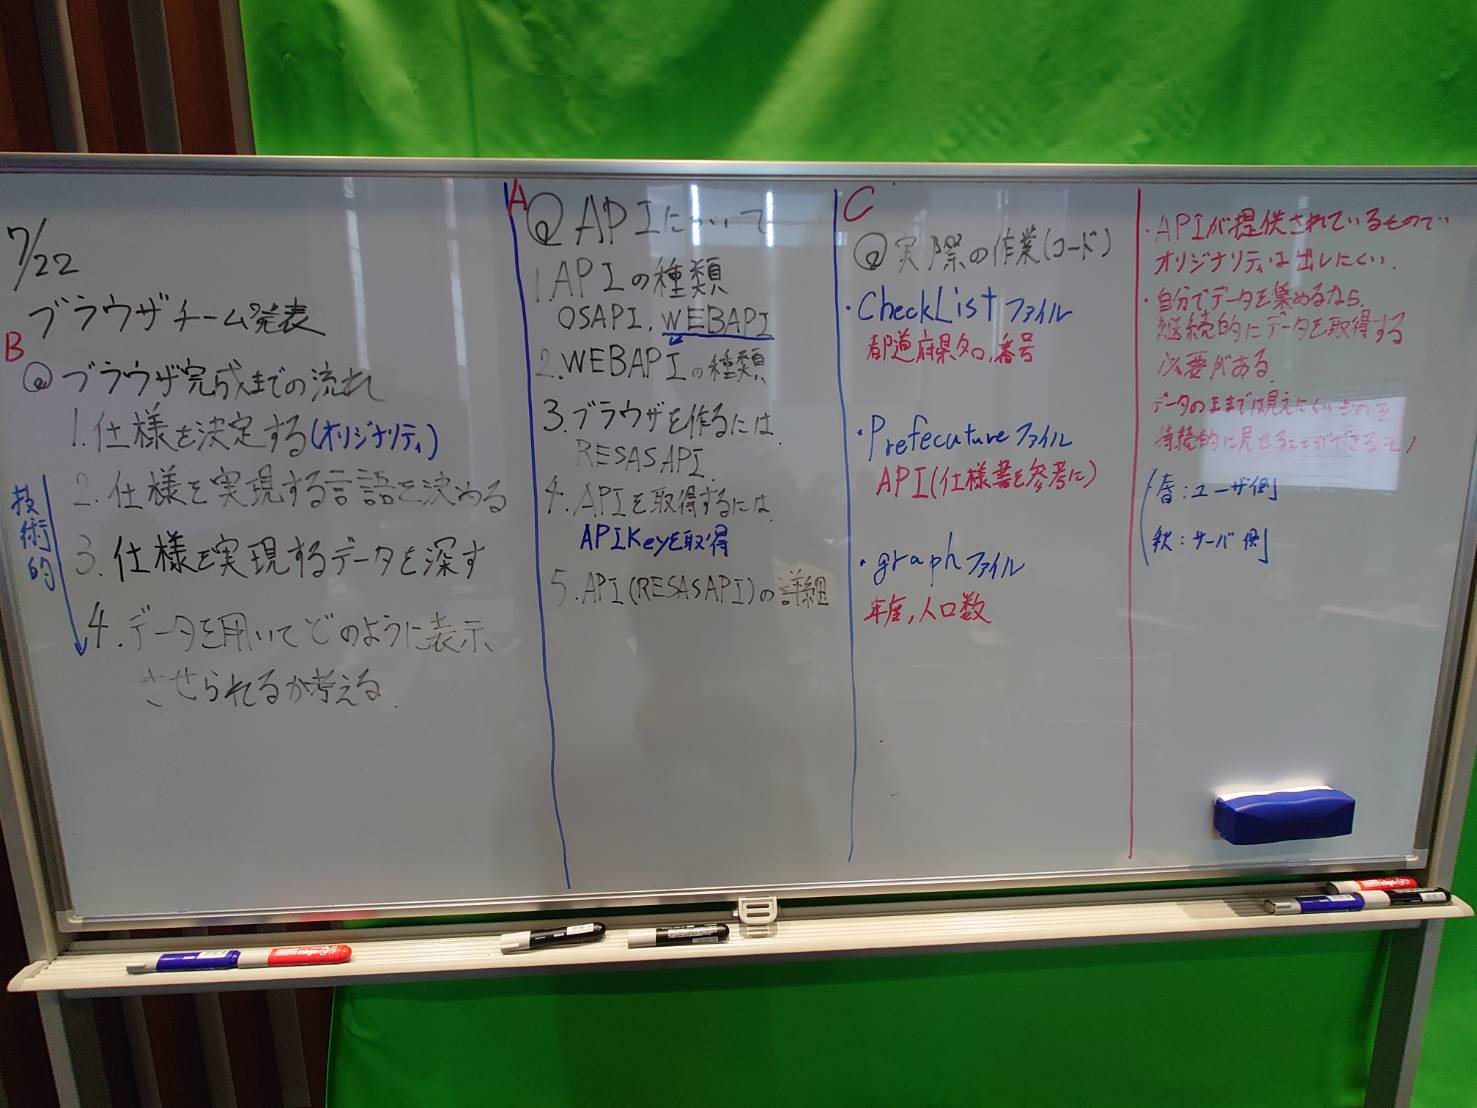 7/22
ブラウザチーム発表
B
@ ブラウザ完成までの流れ
1. 仕様を決定する(オリジナリティ)
2. 仕様を実現する言語を決める
3. 仕様を実現するデータを深す
4. データを用いてどのように表示
させられるか考える.
技術的
A
@ APIについて
1. APIの種類
OSAPI, WEBAPI
2. WEBAPIの種類
3. ブラウザを作るには
RESASAPI
4. APIを取得するには
APIKeyを取得
5. API(RESASAPI)の詳細
C
@ 実際の作業(コード)
・CheckListファイル
都道府県名,番号
・Prefecutureファイル
API(仕様書を参考に)
・graphファイル
年度,人口数
・APIが提供されているもので
オリジナリティは出しにくい.
・自分でデータを集めるなら
継続的にデータを取得する
必要がある.
データのままでは見えにくいものを
持続的に見せることができる
春:ユーザ側
秋:サーバ側